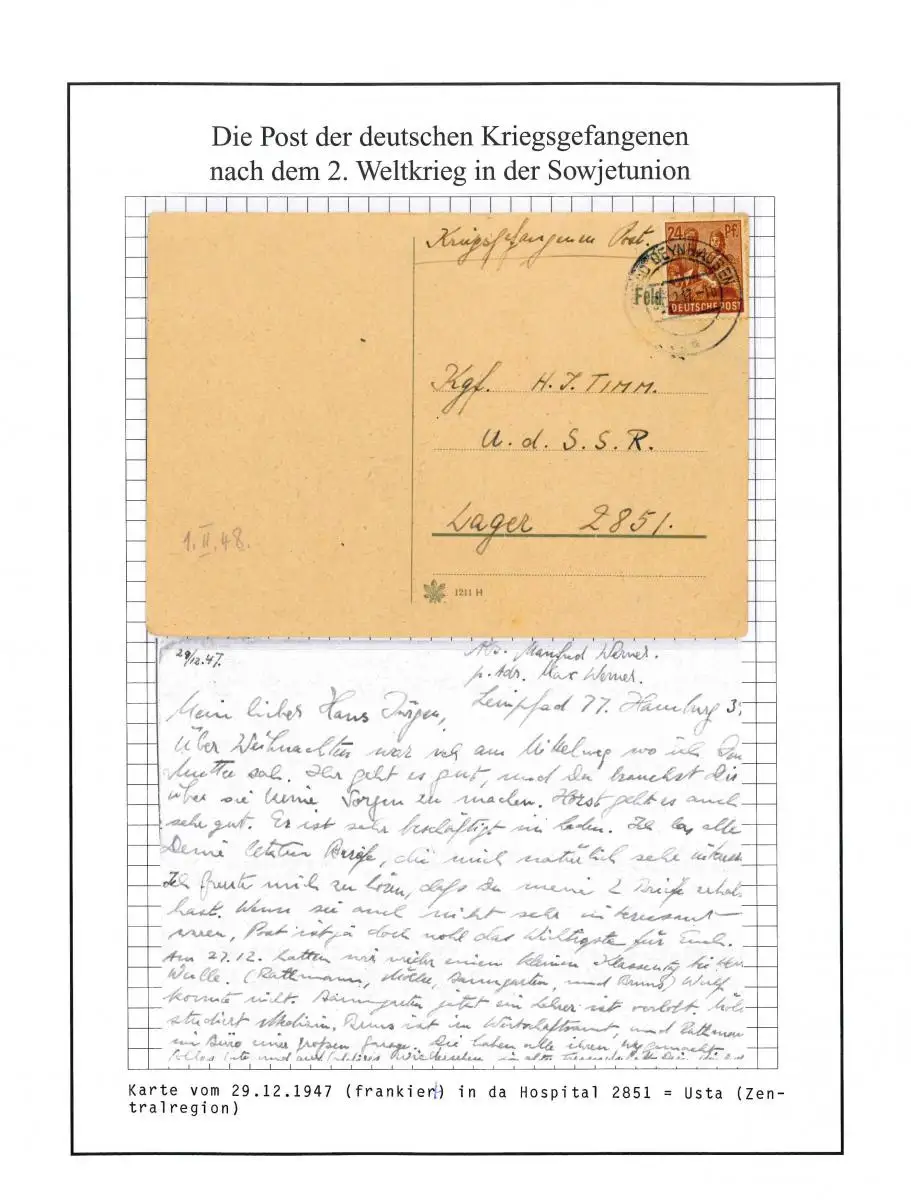 Die Post der deutschen Kriegsgefangenen
nach dem 2. Weltkrieg in der Sowjetunion
Kriegsgefangenen Post.
24 Pf.
BAD OEYNHAUSEN
Feld
DEUTSCHE POST
Kgf. H. J. TIMM.
U. d. S. S. R.
Lager 2851.
1.II.48.
1211 H
29/12.47.
Abs. Manfred Werner.
p. Adr. Max Werner.
Leinpfad 77. Hamburg 39
Mein lieber Hans Jürgen,
Über Weihnachten war ich am wo ich Deine
Mutter sah. Ihr geht es gut, und Du brauchst Dir
über sie keine Sorgen zu machen. Horst geht es auch
sehr gut. Er ist sehr beschäftigt im Laden. Ich las alle
Deine letzten Briefe, die mich natürlich sehr
Ich freute mich zu hören, daß Du meine 2 Briefe
hast. Wenn sie auch nicht sehr interessant
waren, Post ist ja doch wohl das Wichtigste für Euch.
Am 27.12. hatten wir wieder einen kleinen Klassentag bei
Wulle. (Rathmann, Baumgarten, und Bruns) Wulf
konnte nicht. Baumgarten jetzt ein Lehrer ist verlobt.
studiert Medizin. Bruns ist im Wirtschaftsamt, und
im Büro einer großen Garage. Sie haben alle ihren
und Wiedersehen in alter
Karte vom 29.12.1947 (frankiert) in da Hospital 2851 = Usta (Zen-
tralregion)